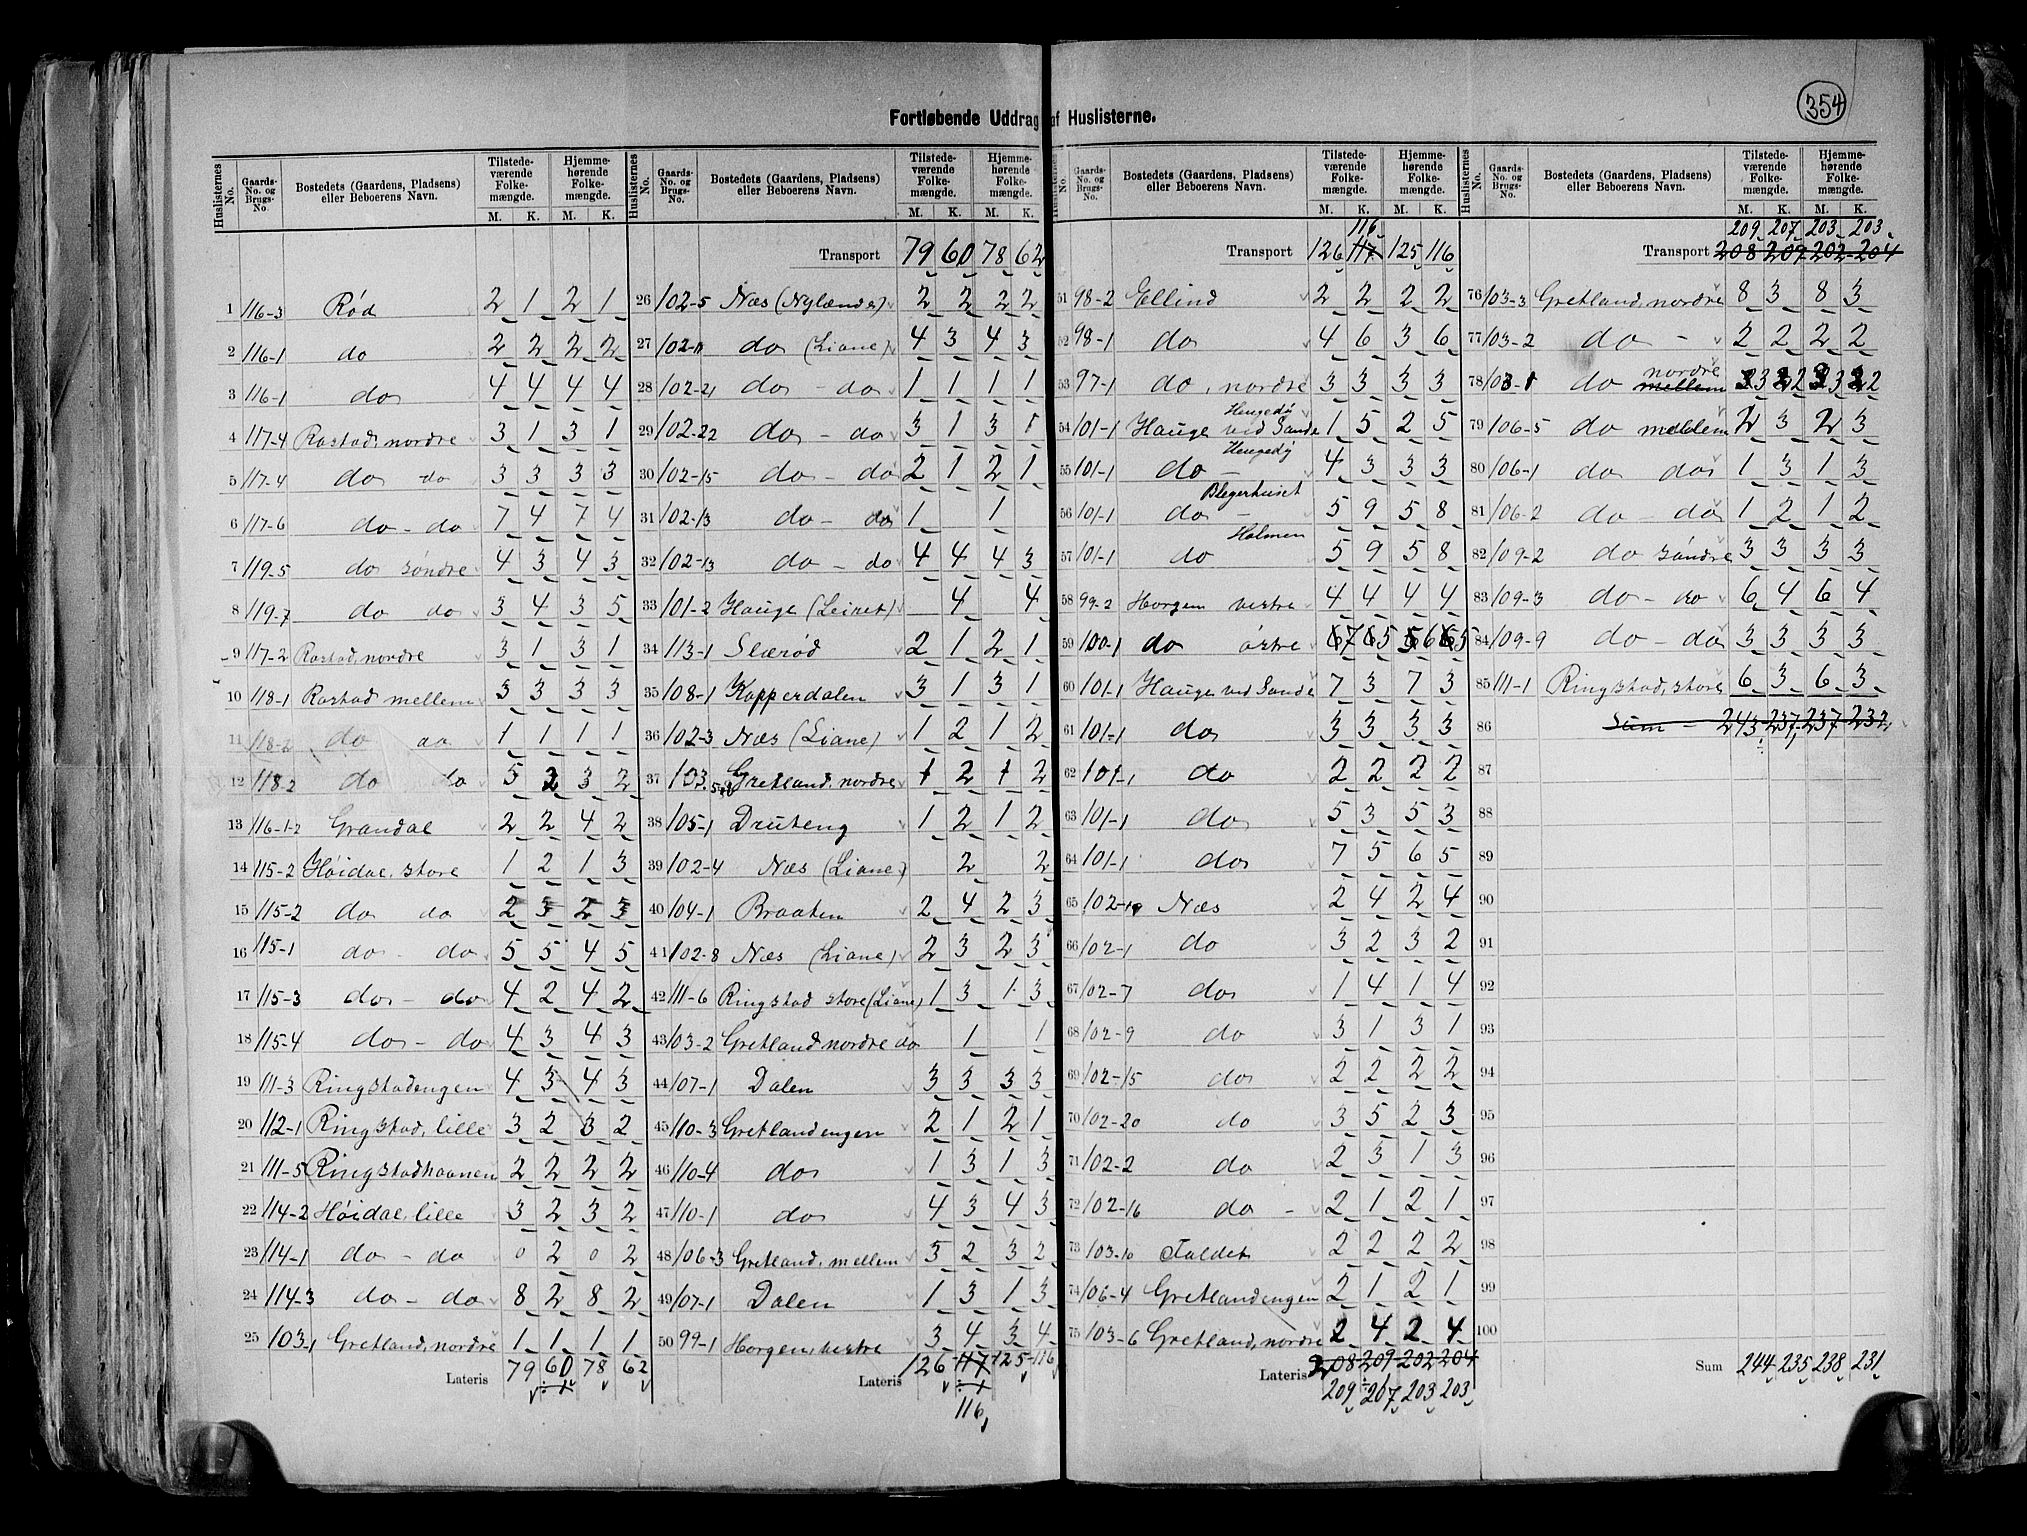 354
Fortløbende Uddrag af Huslisterne.
Huslisternes No. Gaards-No. og Brugs-No. Bostedets (Gaardens, Pladsens) eller Beboerens Navn. Tilstedeværende Folkemængde. M. K. Hjemmehørende Folkemængde. M. K.
1 116-3 Rød 2 1 2 1
2 116-1 do 2 2 2 2
3 116-1 do 4 4 4 4
4 117-4 Rostad, nordre 3 1 3 1
5 117-4 do do 3 3 3 3
6 117-6 do - do 7 4 7 4
7 119-5 do søndre 4 3 4 3
8 119-7 do do 3 4 3 5
9 117-2 Rostad, nordre 3 1 3 1
10 118-1 Rostad mellem 3 3 3 3
11 118-2 do do 1 1 1 1
12 118-2 do do 5 2 3 2
13 116-1-2 Grandal 2 2 4 2
14 115-2 Høidal, store 1 2 1 3
15 115-2 do do 2 3 2 3
16 115-1 do - do 5 5 4 5
17 115-3 do - do 4 2 4 2
18 115-4 do - do 4 3 4 3
19 111-3 Ringstadengen 4 3 4 3
20 112-1 Ringstad, lille 3 2 3 2
21 111-5 Ringstadhavnen 2 2 2 2
22 114-2 Høidal, lille 3 2 3 2
23 114-1 do - do 0 2 0 2
24 114-3 do - do 8 2 8 2
25 103-1 Gretland, nordre 1 1 1 1
Lateris 79 60 78 62
Huslisternes No. Gaards-No. og Brugs-No. Bostedets (Gaardens, Pladsens) eller Beboerens Navn. Tilstedeværende Folkemængde. M. K. Hjemmehørende Folkemængde. M. K.
Transport 79 60 78 62
26 102-5 Næs (Nylænde) 2 2 2 2
27 102-11 do (Liane) 4 3 4 3
28 102-21 do - do 1 1 1 1
29 102-22 do - do 3 1 3 1
30 102-15 do - do 2 1 2 1
31 102-13 do - do 1 1
32 102-13 do - do 4 4 4 3
33 101-2 Hauge (Leiret) 4 4
34 113-1 Slærød 2 1 2 1
35 108-1 Kopperdalen 3 1 3 1
36 102-3 Næs (Liane) 1 2 1 2
37 103-5 Gretland, nordre 1 2 1 2
38 105-1 Druteng 1 2 1 2
39 102-4 Næs (Liane) 2 2
40 104-1 Braaten 2 4 2 3
41 102-8 Næs (Liane) 2 3 2 3
42 111-6 Ringstad store (Liane) 1 3 1 3
43 103-2 Gretland nordre do 1 1
44 107-1 Dalen 3 3 3 3
45 110-3 Gretlandengen 2 1 2 1
46 110-4 do 1 3 1 3
47 110-1 do 4 3 4 3
48 106-3 Gretland, mellem 3 2 3 2
49 107-1 Dalen 1 3 1 3
50 99-1 Horgen, vestre 3 4 3 4
Lateris 126 117 125 116
116
Huslisternes No. Gaards-No. og Brugs-No. Bostedets (Gaardens, Pladsens) eller Beboerens Navn. Tilstedeværende Folkemængde. M. K. Hjemmehørende Folkemængde. M. K.
116
Transport 126 117 125 116
51 98-2 Ellind 2 2 2 2
52 98-1 do 4 6 3 6
53 97-1 do, nordre 3 3 3 3
54 101-1 Hauge ved Sande Haugedý 1 5 2 5
55 101-1 do - Haugedý 4 3 3 3
56 101-1 do - Blegerhuset 5 9 5 8
57 101-1 do Holmen 5 9 5 8
58 99-2 Horgen vestre 4 4 4 4
59 100-1 do østre 6 7 6 5 5 6 6 5
60 101-1 Hauge ved Sande 7 3 7 3
61 101-1 do 3 3 3 3
62 101-1 do 2 2 2 2
63 101-1 do 5 3 5 3
64 101-1 do 7 5 6 5
65 102-19 Næs 2 4 2 4
66 102-1 do 3 2 3 2
67 102-7 do 1 4 1 4
68 102-9 do 3 1 3 1
69 102-15 do 2 2 2 2
70 102-20 do 3 5 2 3
71 102-2 do 2 3 1 3
72 102-16 do - 2 1 2 1
73 103-10 Faldet 2 2 2 2
74 106-4 Gretlandengen 2 1 2 1
75 103-6 Gretland, nordre 2 4 2 4
Lateris 208 209 202 204
209 207 203 203
Huslisternes No. Gaards-No. og Brugs-No. Bostedets (Gaardens, Pladsens) eller Beboerens Navn. Tilstedeværende Folkemængde. M. K. Hjemmehørende Folkemængde. M. K.
209 207 203 203
Transport 208 209 202 204
76 103-3 Gretland, nordre 8 3 8 3
77 103-2 do - 2 2 2 2
78 103-1 do mellem nordre 3 2 3 2
79 106-5 do mellem 2 3 2 3
80 106-1 do do 1 3 1 3
81 106-2 do - do 1 2 1 2
82 109-2 do søndre 3 3 3 3
83 109-3 do - do 6 4 6 4
84 109-9 do - do 3 3 3 3
85 111-1 Ringstad, store 6 3 6 3
86 Sum - 243 237 237 232
87
88
89
90
91
92
93
94
95
96
97
98
99
100
Sum 244 235 238 231